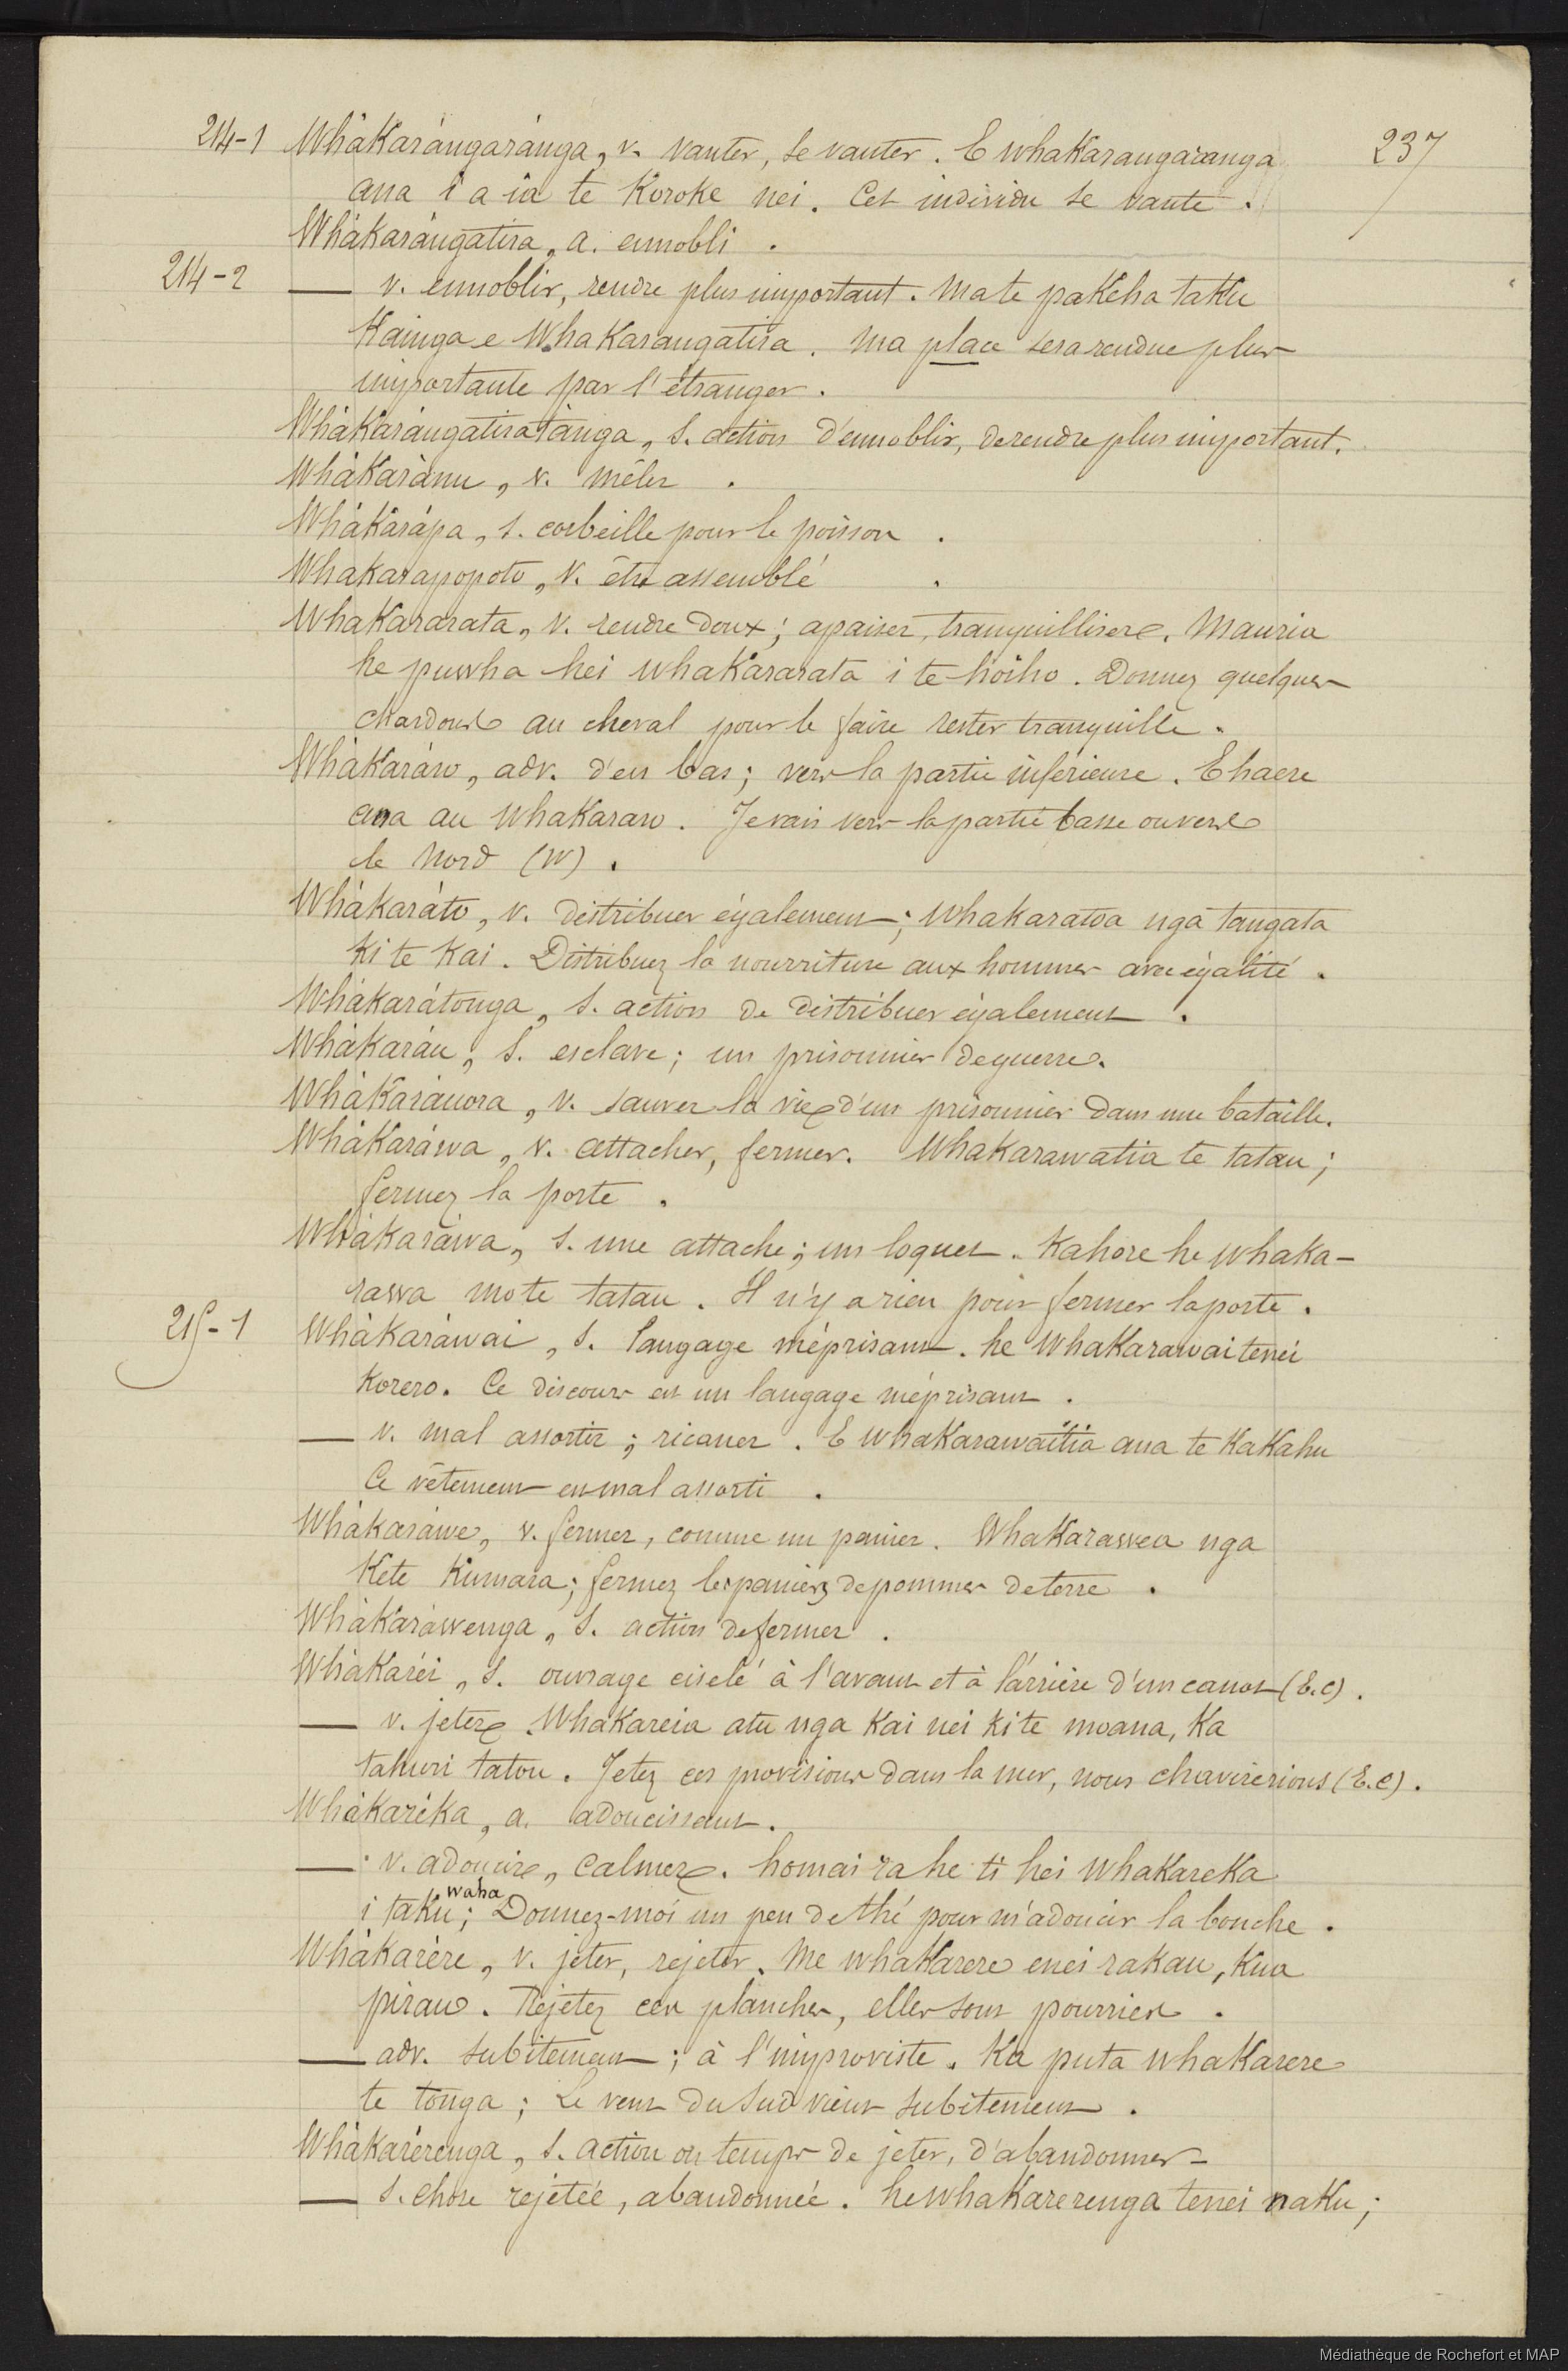 237
214-1 Whàkarángaránga, v. vanter, se vanter. E whakarangaranga
ana i a ia te Koroke nei. Cet individu se vante.
Whàkarángatíra, a. ennobli.
214-2 — v. ennoblir, rendre plus important. Ma te pakeha taku
Kainga e Whakarangatira. Ma place sera rendue plus
importante par l'étranger.
Whàkarángatiratànga, s. action d'ennoblir, de rendre plus important.
Whàkarànu, v. mêler.
Whàkarápa, s. corbeille pour le poisson.
Whakarapopoto, v. être assemblé.
Whakararata, v. rendre doux; apaiser, tranquilliser. Mauria
he puwha hei whakararata i te hoiho. Donnez quelques
chardons au cheval pour le faire rester tranquille.
Whàkaráro, adv. d'en bas; vers la partie inférieure. E haere
ana au whakararo. Je vais vers la partie basse ou vers
le Nord (W).
Whàkaráto, v. distribuer également; whakaratoa nga tangata
ki te Kai. Distribuez la nourriture aux hommes avec égalité.
Whàkarátonga, s. action de distribuer également.
Whàkaráu, s. esclave; un prisonnier de guerre.
Whàkaráuora, v. sauver la vie d'un prisonnier dans une bataille.
Whàkaráwa, v. attacher, fermer. Whakarawatia te tatau;
fermez la porte.
Whàkaráwa, s. une attache; un loquet. Kahore he whaka-
rawa mo te tatau. Il n'y a rien pour fermer la porte.
215-1 Whàkaráwai, s. langage méprisant. he Whakarawai tenei
Korero. Ce discours est un langage méprisant.
— v. mal assortir; ricaner. E whakarawaitia ana te Kakahu
Ce vêtement est mal assorti.
Whàkaráwe, v. fermer, comme un panier. Whakarawea nga
Kete Kumara; fermez les paniers de pommes de terre.
Whàkaráwenga, s. action de fermer.
Whàkaréi, s. ouvrage ciselé à l'avant et à l'arrière d'un canot (E.C).
— v. jeter. Whakareia atu nga Kai nei ki te moana, Ka
tahuri tatou. Jetez ces provisions dans la mer, nous chavirerions (E.C).
Whàkaréka, a. adoucissant.
— v. adoucir, calmer. homai ra he ti hei whakareka
i taku waha; Donnez-moi un peu de thé pour m'adoucir la bouche.
Whàkarère, v. jeter, rejeter. Me whakarere enei rakau, Kua
pirau. Rejetez ces planches, elles sont pourries.
— adv. subitement; à l'improviste. Ka puta whakarere
te tonga; Le vent du Sud vient subitement.
Whàkarérenga, s. action ou temps de jeter, d'abandonner-
— s. chose rejetée, abandonnée. he whakarerenga tenei naku;
Médiathèque de Rochefort et MAP